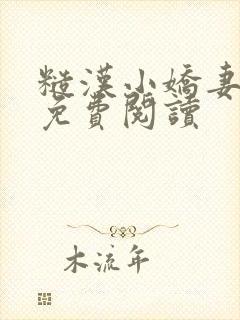 糙漢小嬌妻
免費閱讀
木流年